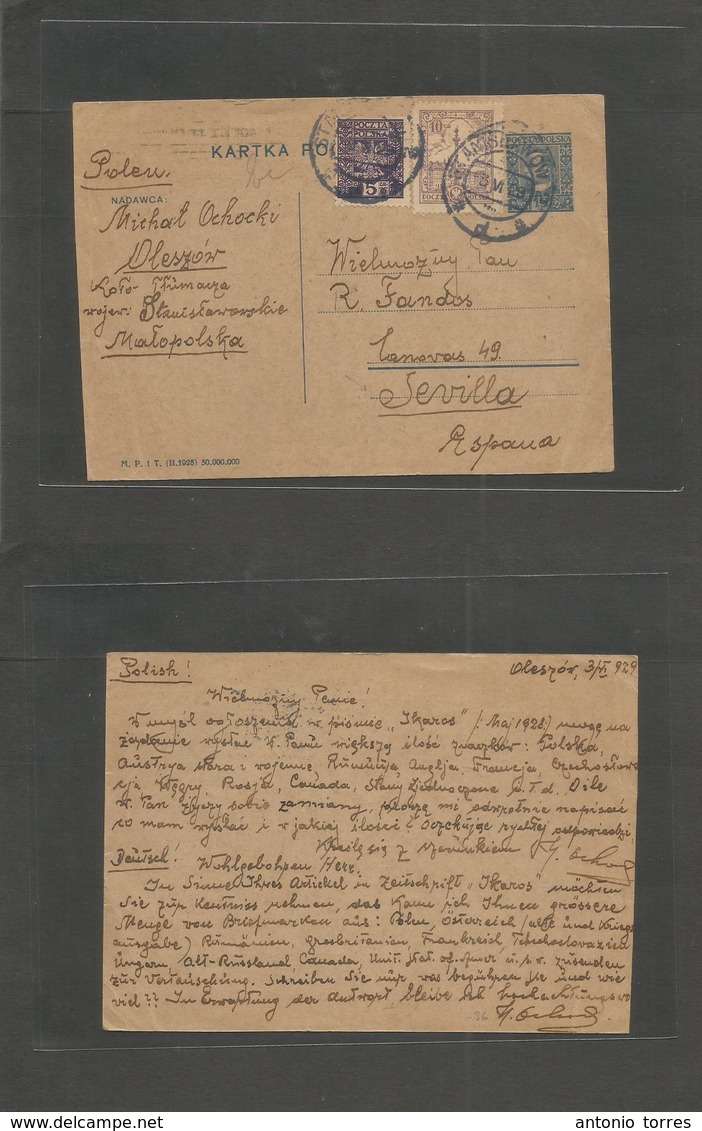 KARTKA PO
POCZTA
POLSKA
5
10
POCZTA POLSKA
15
Polen.
NADAWCA:
Michał Ochocki
Oleszów
koło Tłumacza
wojew. Stanisławowskie
Małopolska
Wielmożny Pan
R. Fandos
Canovas 49.
Sevilla
Espana
M. P. i T. (II.1928) 50.000.000
Polish!
Oleszów, 3/VI 929
Wielmożny Panie!
W myśl ogłoszenia w piśmie „Ikaros" /: Maj 1928:/ mogę na
żądanie wysłać W. Panu większą ilość znaczków: Polska,
Austrya stara i wojenne, Rumunja, Anglja, Francja, Czechosłowa
cja Węgry, Rosja, Canada, Stany Zjednoczone i.t.d. O ile
W. Pan życzy sobie zamiany, proszę mi odwrotnie napisać
co mam wysłać i w jakiej ilości? Oczekując rychłej odpowiedzi,
Kreślę się z szacunkiem
Deutsch!
Wohlgebohren Herr.
In Sinne Ihres Artickel in Zeitschrift „Ikaros" möchten
Sie zur Kentniss nehmen, das kann ich Ihnen grössere
Menge von Briefmarken aus: Polen, Österreich /alte und Kriegs
ausgabe/ Rumänien, Grosbritanien, Frankreich, Tschechoslovazien
Ungarn, Alt-Russland Canada, Unit. Stat. of. Amer u. s. w. zusenden
zur Vertauschung. Schreiben Sie nur was begehren Sie und wie
viel?? In Erwartung der Antwort, bleibe ich hochachtungsvo
36
M. Ochocki
antonio torres